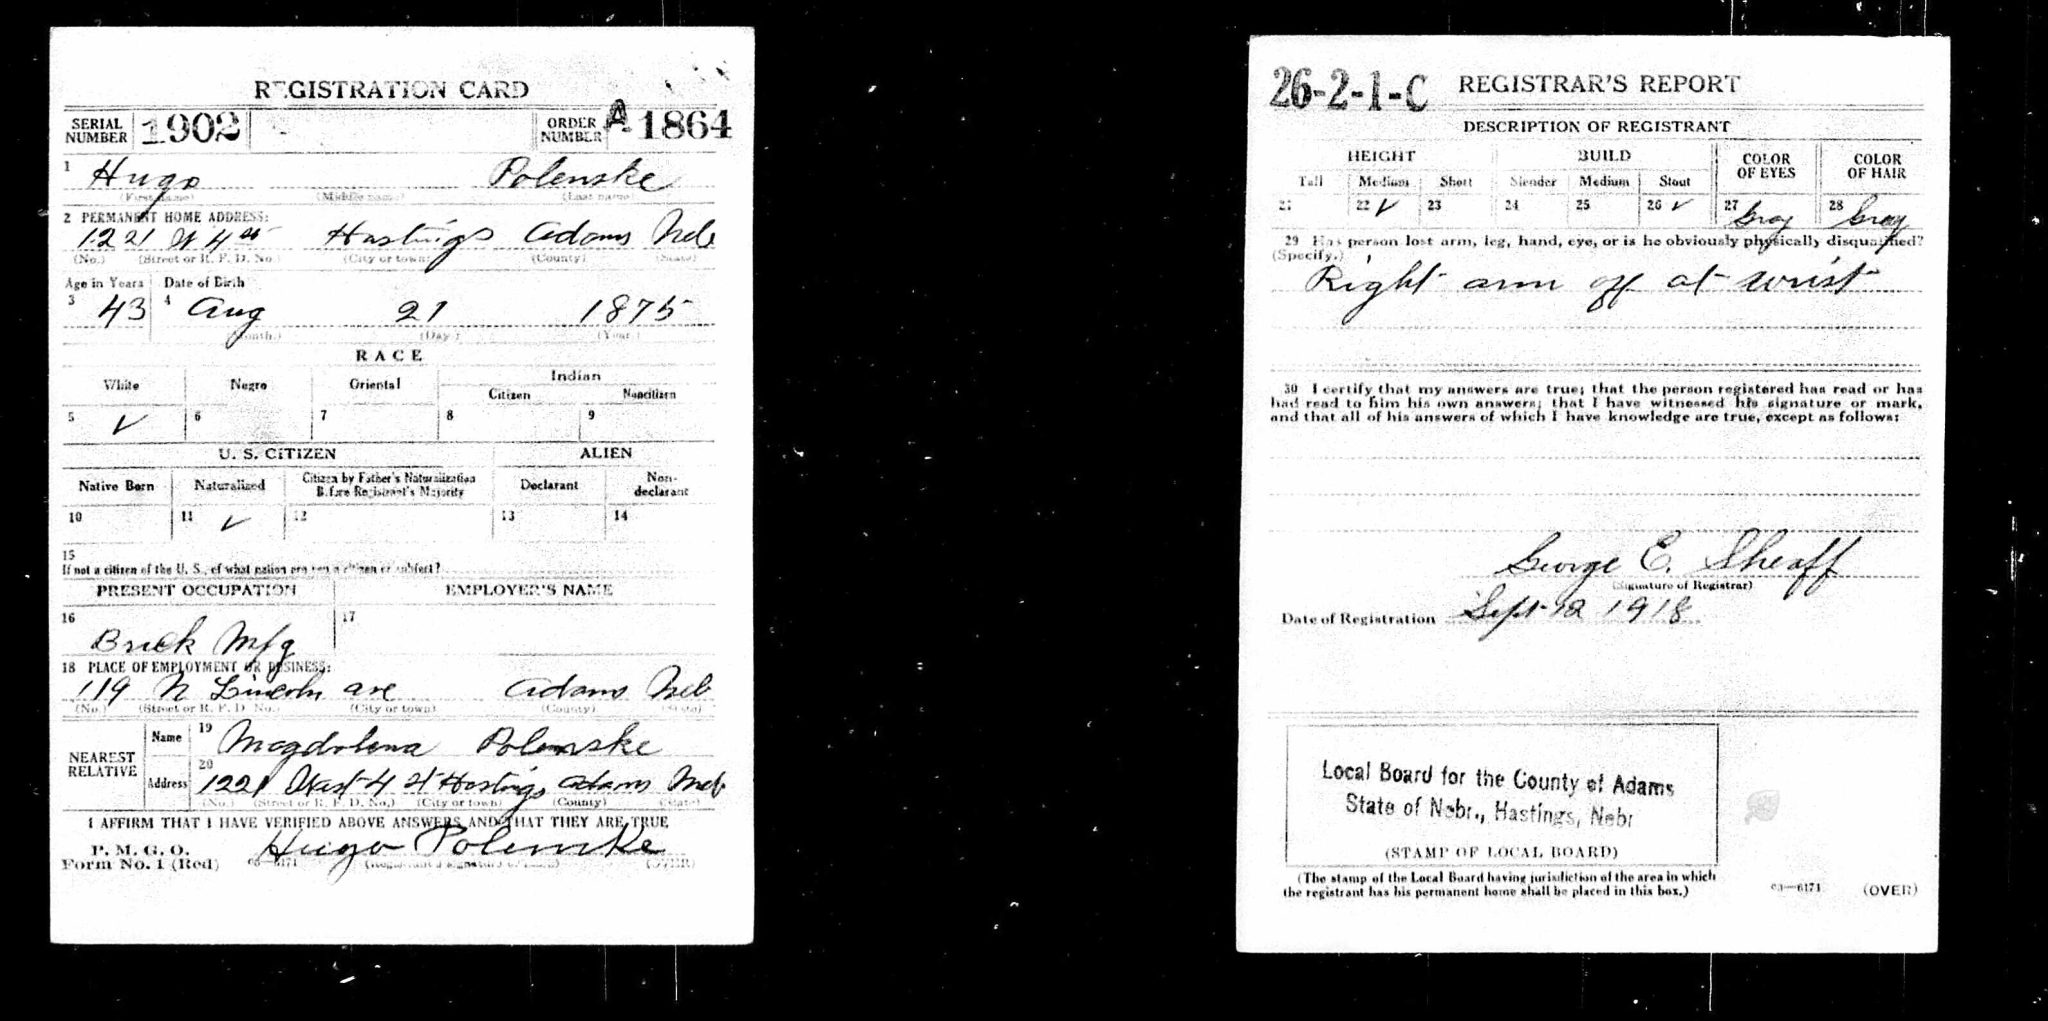 REGISTRATION CARD
SERIAL NUMBER 1902 ORDER NUMBER A-1864
1 Hugo Polenske
(First name) (Middle name) (Last name)
2 PERMANENT HOME ADDRESS:
1221 W 4th Hastings Adams Neb
(No.) (Street or R. F. D. No.) (City or town) (County) (State)
Age in Years Date of Birth
3 43 4 Aug 21 1875
(Month.) (Day.) (Year.)
RACE
White Negro Oriental Indian
Citizen Noncitizen
5 ✓ 6 7 8 9
U. S. CITIZEN ALIEN
Native Born Naturalized Citizen by Father's Naturalization Before Registrant's Majority Declarant Non-declarant
10 11 ✓ 12 13 14
15
If not a citizen of the U. S., of what nation are you a citizen or subject?
PRESENT OCCUPATION EMPLOYER'S NAME
16 Brick Mfg 17
18 PLACE OF EMPLOYMENT OR BUSINESS:
119 N Lincoln ave Adams Neb
(No.) (Street or R. F. D. No.) (City or town) (County) (State)
NEAREST RELATIVE Name 19 Magdolena Polenske
Address 20 1221 West 4 St Hastings Adams Neb
(No.) (Street or R. F. D. No.) (City or town) (County) (State)
I AFFIRM THAT I HAVE VERIFIED ABOVE ANSWERS AND THAT THEY ARE TRUE
P. M. G. O.
Form No. 1 (Red) 03—6171 Hugo Polenske (OVER)
26-2-1-C REGISTRAR'S REPORT
DESCRIPTION OF REGISTRANT
HEIGHT BUILD COLOR OF EYES COLOR OF HAIR
Tall Medium Short Slender Medium Stout
21 22 ✓ 23 24 25 26 ✓ 27 Gray 28 Gray
29 Has person lost arm, leg, hand, eye, or is he obviously physically disqualified?
(Specify.)
Right arm off at wrist
30 I certify that my answers are true; that the person registered has read or has
had read to him his own answers; that I have witnessed his signature or mark,
and that all of his answers of which I have knowledge are true, except as follows:
George E. Sheaff
(Signature of Registrar)
Date of Registration Sept 12 1918
Local Board for the County of Adams
State of Nebr., Hastings, Nebr
(STAMP OF LOCAL BOARD)
(The stamp of the Local Board having jurisdiction of the area in which
the registrant has his permanent home shall be placed in this box.)
03—6171 (OVER)